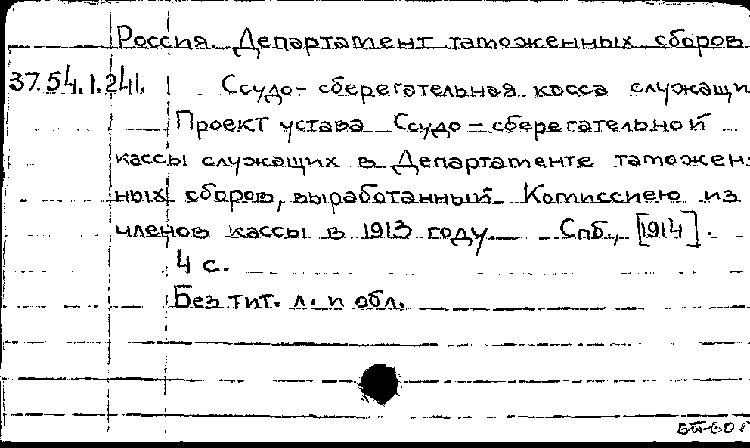 Россия. Департамент таможенных сборов
37.54.1.241. Ссудо-сберегательная касса служащи
Проект устава Ссудо-сберегательной
кассы служащих в Департаменте таможен-
ных сборов, выработанный Комиссиею из
членов кассы в 1913 году. Спб., [1914].
4 с.
Без тит. л. и обл.